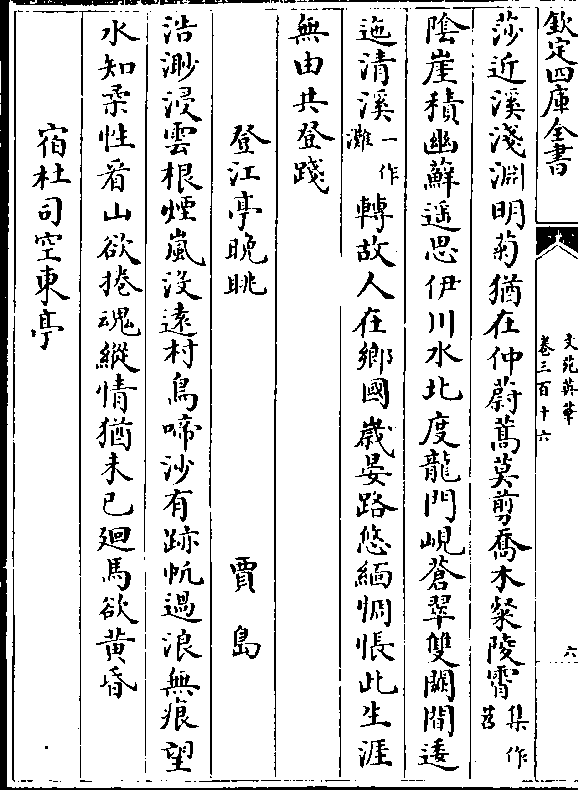 欽定四庫全書
文苑英華
卷三百十六
六
莎近溪淺淵明菊猶在仲蔚蒿莫剪喬木粲陵霄集作苕
陰崖積幽蘚遥思伊川水北度龍門峴蒼翠雙闕間逶
迤清溪一作灘轉故人在鄉國歲晏路悠緬惆悵此生涯
無由共登踐
登江亭晚眺 賈島
浩渺浸雲根煙嵐没遠村鳥啼沙有跡帆過浪無痕望
水知柔性看山欲捲魂縱情猶未已迴馬欲黄昏
宿杜司空東亭